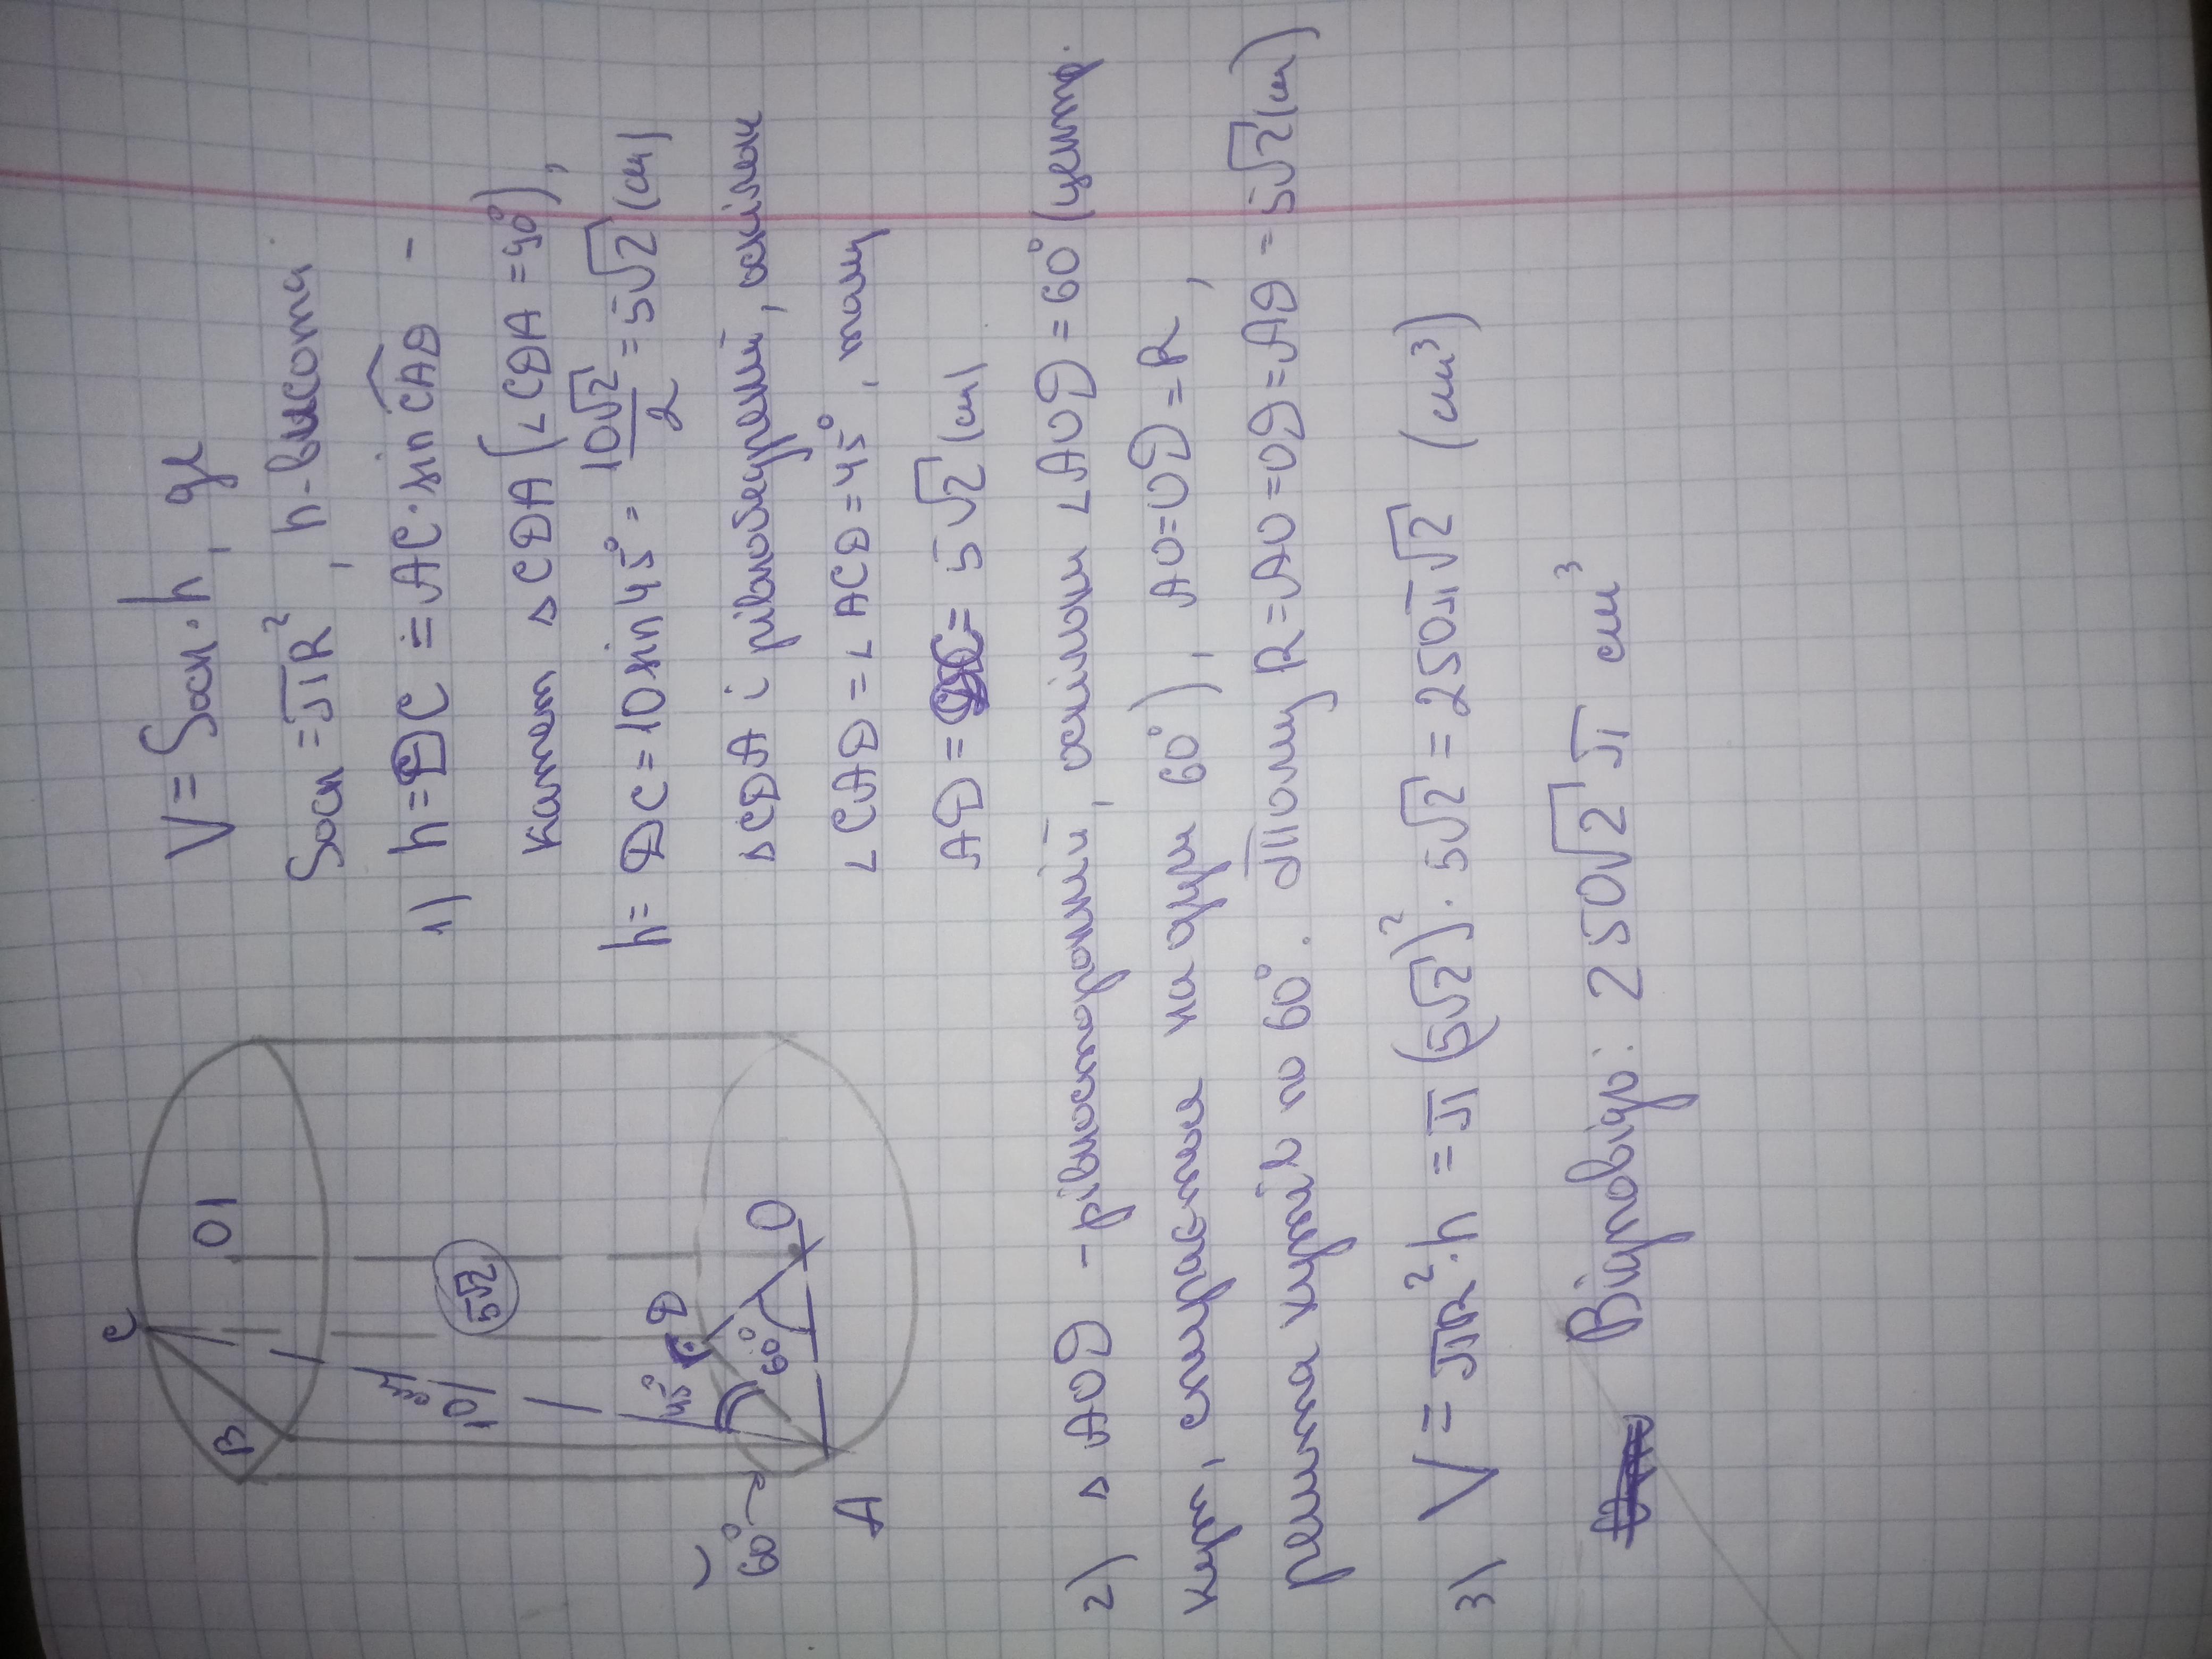 V = Sосн · h, де
Sосн = πR², h - висота
1) h = DC = AC · sin CAD -
катет △CDA (∠CDA = 90°),
h = DC = 10 sin 45° = 10√2/2 = 5√2 (см)
△CDA і рівнобедрений, оскільки
∠CAD = ∠ACD = 45°, тому
AD = 5√2 (см)
C
B
O1
10 см
5√2
45°
D
60°
O
60°
A
2) △AOD - рівносторонній, оскільки ∠AOD = 60° (центр.
кут, спирається на дугу 60°), AO = OD = R,
решта кутів по 60°. Тому R = AO = OD = AD = 5√2 (см)
3) V = πR² · h = π(5√2)² · 5√2 = 250π√2 (см³)
Відповідь: 250√2 π см³